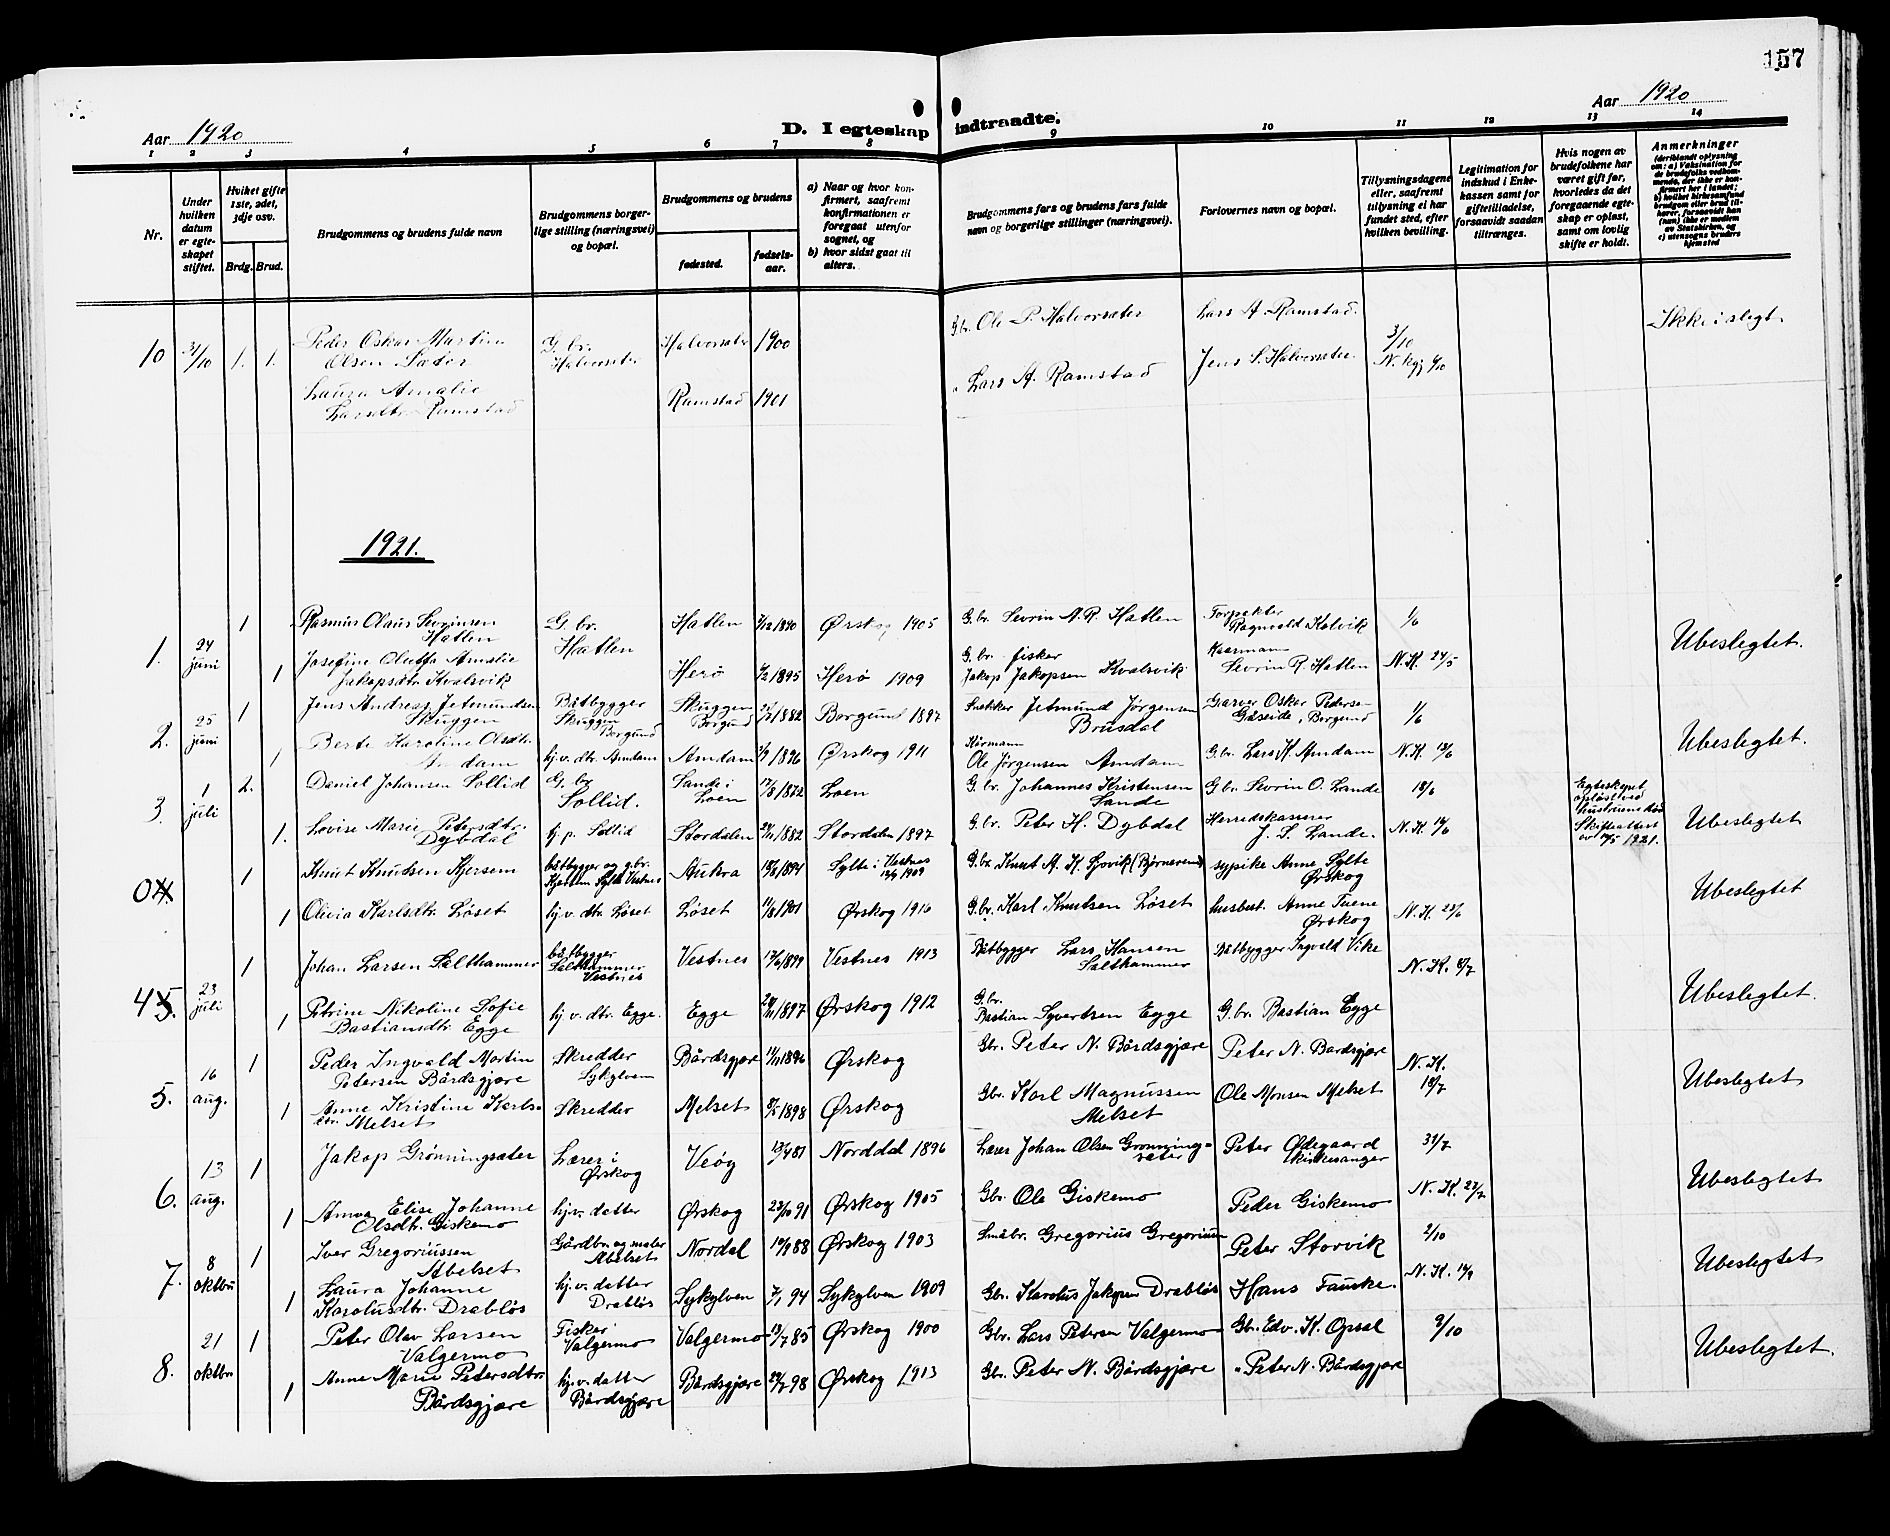 157
Aar 1920
D. I egteskap indtraadte.
Aar 1920
1 2 3 4 5 6 7 8 9 10 11 12 13 14
Nr.
Under hvilken datum er egteskapet stiftet.
Hvilket gifte 1ste, 2det, 3dje osv.
Brdg. Brud.
Brudgommens og brudens fulde navn
Brudgommens borgerlige stilling (næringsvei) og bopæl.
Brudgommens og brudens
fødested.
fødselsaar.
a) Naar og hvor konfirmert, saafremt konfirmationen er foregaat utenfor sognet, og
b) hvor sidst gaat til alters.
Brudgommens fars og brudens fars fulde navn og borgerlige stillinger (næringsvei).
Forlovernes navn og bopæl.
Tillysningsdagene eller, saafremt tillysning ei har fundet sted, efter hvilken bevilling.
Legitimation for indskud i Enkekassen samt for giftetilladelse, forsaavidt saadan tiltrænges.
Hvis nogen av brudefolkene har været gift før, hvorledes da det foregaaende egteskap er opløst, samt om lovlig skifte er holdt.
Anmerkninger
10 31/10 1. 1. Peder Oskar Martin Olsen Sæter G. br. Halvorsæter Halvorsæter 1900 G.br. Ole P. Halvorsæter Lars A. Ramstad. 3/10 Ikke i slegt.
Laura Amalie Larsdtr. Ramstad Ramstad 1901 " Lars A. Ramstad Jens S. Halvorsæter
1921.
1. 24 juni 1 Rasmus Olaus Sevrinsen Hatlen G. br. Hatlen Hatlen Ørskog 1905 G. br. Sevrin N. R. Hatlen Ragnvald Kalvik 1/6 Ubeslegtet.
1 Josefine Oluffa Amalie Jakopsdtr. Kvalsvik Herø 1895 Herø 1909 G. br. fisker Jakop Jakopsen Kvalsvik Sevrin R. Hatlen N. K. 24/5
2. 25 juni 1 Jens Andreas Jetmundsen Skuggen Båtbygger Skuggen Borgund Skuggen Borgund 1882 Borgund 1897 Snekker Jetmund Jørgensen Brusdal Garver Oskar Pedersen Gåseide, Borgund 1/6 Ubeslegtet.
1 Berte Karoline Olsdtr. Amdam hj. v. dtr. Amdam Amdam 1896 Ørskog 1911 Ole Jørgensen Amdam G. br. Lars K. Amdam N. K.
3. 1 juli 2. Daniel Johansen Sollid G. br. Sollid. Sande i Loen 17/8 1872 Loen G. br. Johannes Kristensen Sande G. br. Sevrin O. Lande 18/6 Egteskapet opløst ved hustruens død Skifteattest 1921. Ubeslegtet
1. Lovise Marie Petersdtr. Dybdal hj. p. Sollid Stordalen 1882 Stordalen 1897 G. br. Peter H. Dybdal Herredskasserer J. S. Lande. N. K.
04 1 Knut Knudsen Kjersem båtbygger og g.br. Kjersem Sylte Vestnes Aukra 1894 Sylte i Vestnes 1909 G. br. Knut A. K. Sjøvik sypike Anne Sylte Ørskog Ubeslegtet
1 Olivia Karlsdtr. Løset hj. v. dtr. Løset Løset 1901 Ørskog 1916 G. br. Karl Knutsen Løset husbest. Anne Tuene Ørskog N. K. 23/6
4 23 juli 1 Johan Larsen Salthammer båtbygger Salthammer Vestnes Vestnes Vestnes 1913 Båtbygger Lars Hansen Salthammer Båtbygger Ingvald Vike N. K. Ubeslegtet.
1 Petrine Nikoline Sofie Bastiansdtr. Egge hj. v. dtr. Egge. Egge 1897 Ørskog 1912 G. br. Bastian Syvertsen Egge G. br. Bastian Egge
5. 16 aug. 1 Peder Ingvald Martin Petersen Bårdsgjære Skredder Sykylven Bårdsgjære 1896 Ørskog Gbr. Peter N. Bårdsgjære Peter N. Bårdsgjære N. K. 18/7 Ubeslegtet
1 Anne Kristine Karlsdtr. Melset Skredder Melset 1898 Ørskog Gbr. Karl Magnussen Melset Ole Monsen Melset
6. 13 aug. 1 Jakop Grønningsæter Lærer i Ørskog Veøy 13/4 81 Norddal 1896 Lærer Johan Olsen Grønningsæter Peter Ødegaard kirkesanger 31/7 Ubeslegtet
1 Anna Elise Johanne Olsdtr. Giskemo hj.v. datter Ørskog 23/10 91 Ørskog 1905 Gbr. Ole Giskemo Peder Giskemo N. K. 27/7
7. 8 oktbr 1 Iver Gregoriussen Abelset Gårdbr. og maler Abelset Nordal 88 Ørskog 1903 Småbr. Gregorius Gregoriussen Peter Storvik 2/10 Ubeslegtet
1 Laura Johanne Karolusdtr. Drabløs hj. v. datter Drabløs Sykylven 94 Sykylven 1909 Gbr. Karolus Jakopsen Drabløs Hans Fauske. N. K.
8. 21 oktbr 1 Peter Olav Larsen Valgermo Fisker Valgermo Valgermo 13/7 85 Ørskog 1900 Gbr. Lars Petersen Valgermo Gbr. Edv. K. Opsal 9/10 Ubeslegtet.
1 Anne Marie Petersdtr. Bårdsgjære hj. v. datter Bårdsgjære Bårdsgjære 98 Ørskog 1913 Gbr. Peter N. Bårdsgjære " Peter N. Bårdsgjære